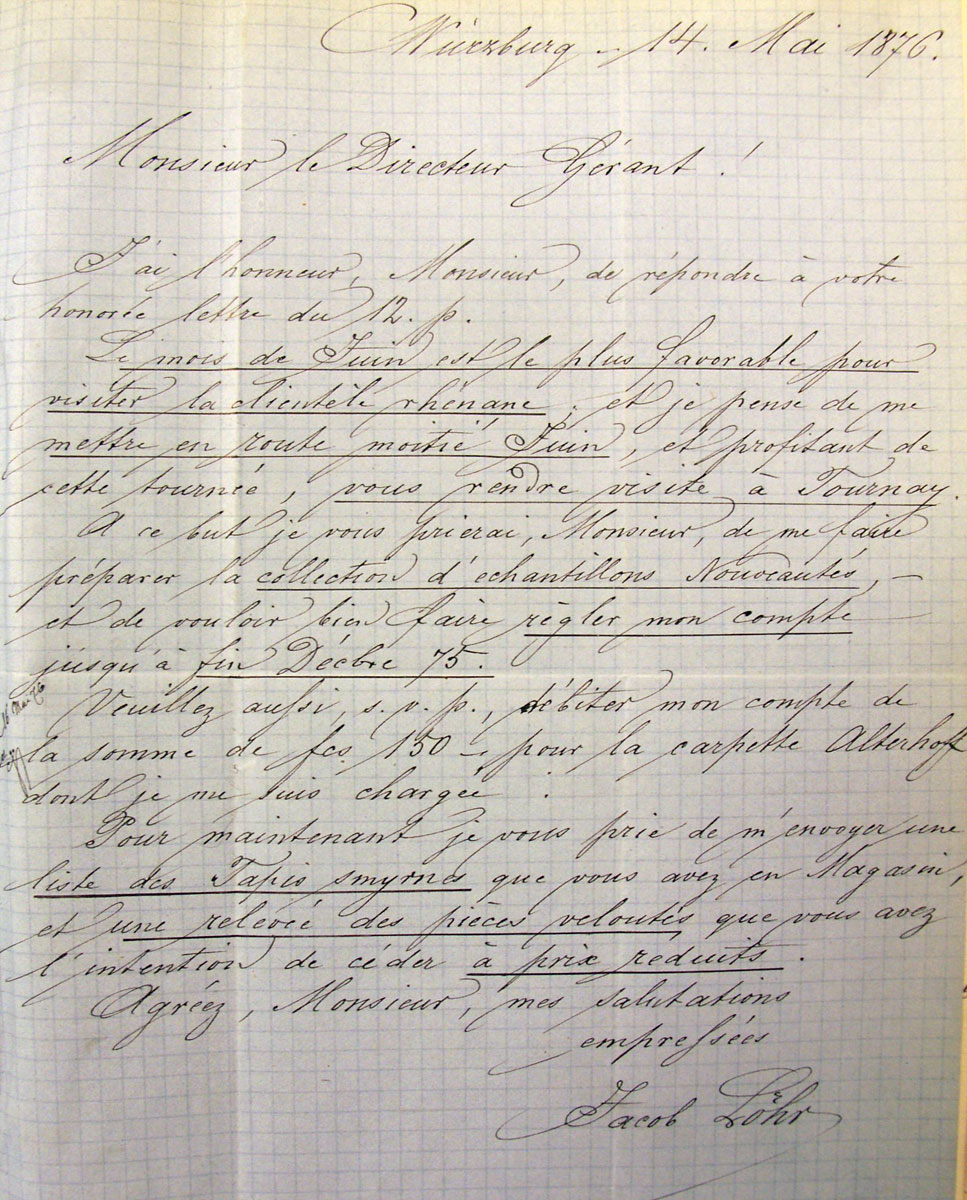 Würzburg - 14. Mai 1876.
Monsieur le Directeur Gérant !
J'ai l'honneur, Monsieur, de répondre à votre
honorée lettre du 12. p.
Le mois de Juin est le plus favorable pour
visiter la clientèle rhénane, et je pense de me
mettre en route moitié Juin, et profitant de
cette tournée, vous rendre visite à Tournay.
A ce but je vous prierai, Monsieur, de me faire
préparer la collection d'echantillons Nouveautés, —
et de vouloir bien faire règler mon compte
jusqu'à fin Décbre 75.
Veuillez aussi, s. v. p., débiter mon compte de
16 Mai 76
la somme de fcs 150 – pour la carpette Alterhoff
dont je me suis chargée.
Pour maintenant je vous prie de m'envoyer une
liste des Tapis smyrnes que vous avez en Magasin,
et une relevée des pièces veloutés que vous avez
l'intention de céder à prix réduits.
Agréez, Monsieur, mes salutations
empressées
Jacob Löhr